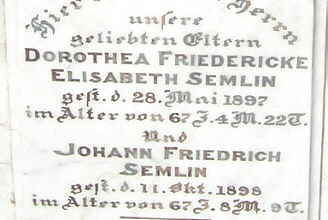 Hier ruhen im Herrn
unsere
geliebten Eltern
DOROTHEA FRIEDERICKE
ELISABETH SEMLIN
gest. d. 28. Mai 1897
im Alter von 67 J. 4 M. 22 T.
Und
JOHANN FRIEDRICH
SEMLIN
gest. d. 11. Okt. 1898
im Alter von 67 J. 8 M. 9 T.